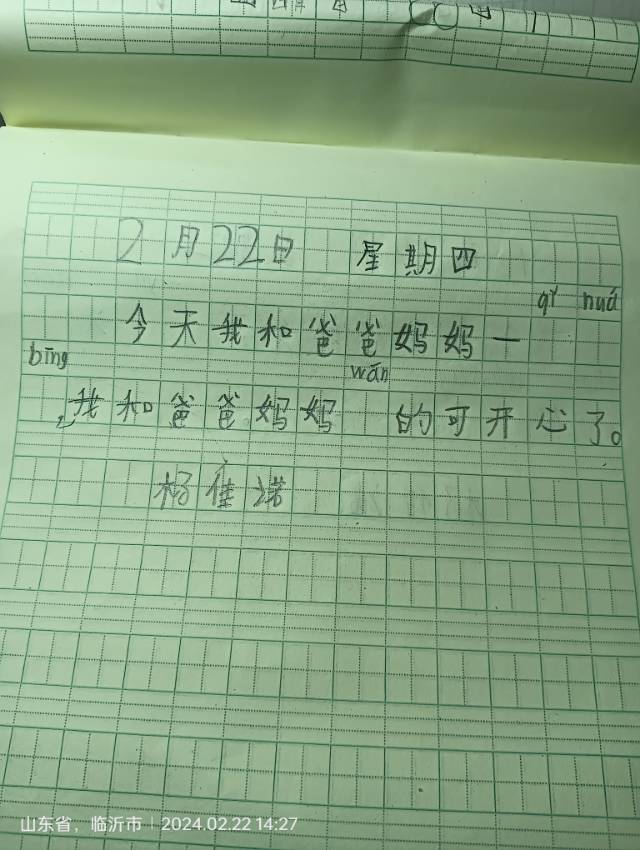 2月22日 星期四
qǐ huá
今天我和爸爸妈妈一
bīng wán
,我和爸爸妈妈 的可开心了。
杨佳诺
山东省，临沂市 | 2024.02.22 14:27